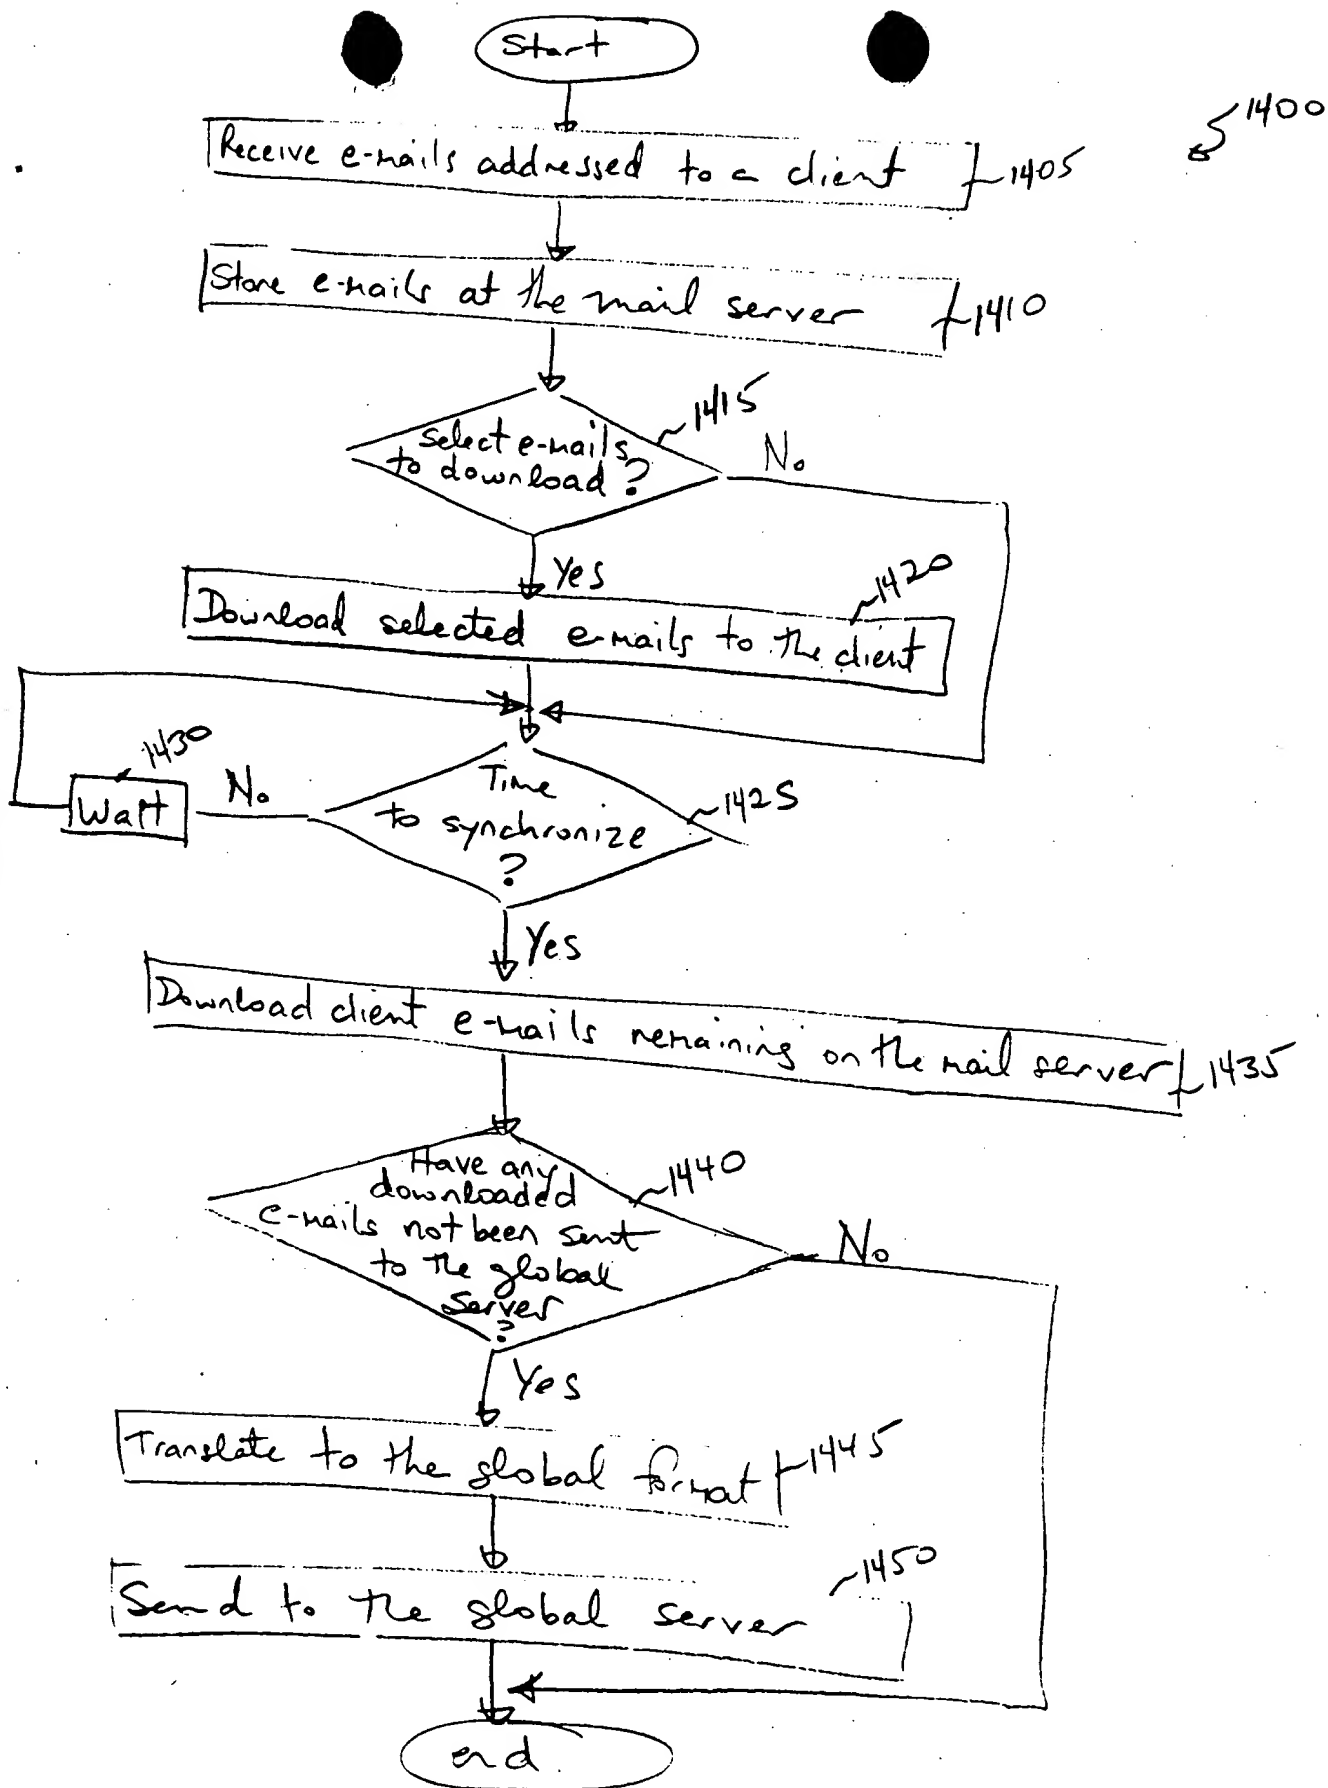 Start
1400
Receive e-mails addressed to a client 1405
Store e-mails at the mail server 1410
1415
Select e-mails
to download?
No
Yes
1420
Download selected e-mails to the client
1430
Wait
No
Time
to synchronize
?
1425
Yes
Download client e-mails remaining on the mail server 1435
Have any
downloaded
e-mails not been sent
to the global
Server
?
1440
No
Yes
Translate to the global format 1445
1450
Send to the global server
end